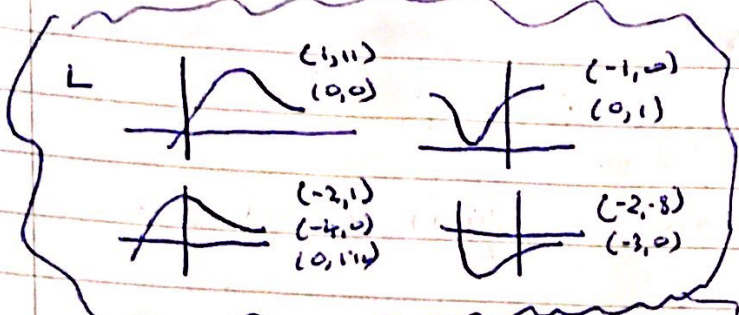 L
(1,11)
(0,0)
(-1,0)
(0,1)
(-2,1)
(-4,0)
(-2,-8)
(-3,0)